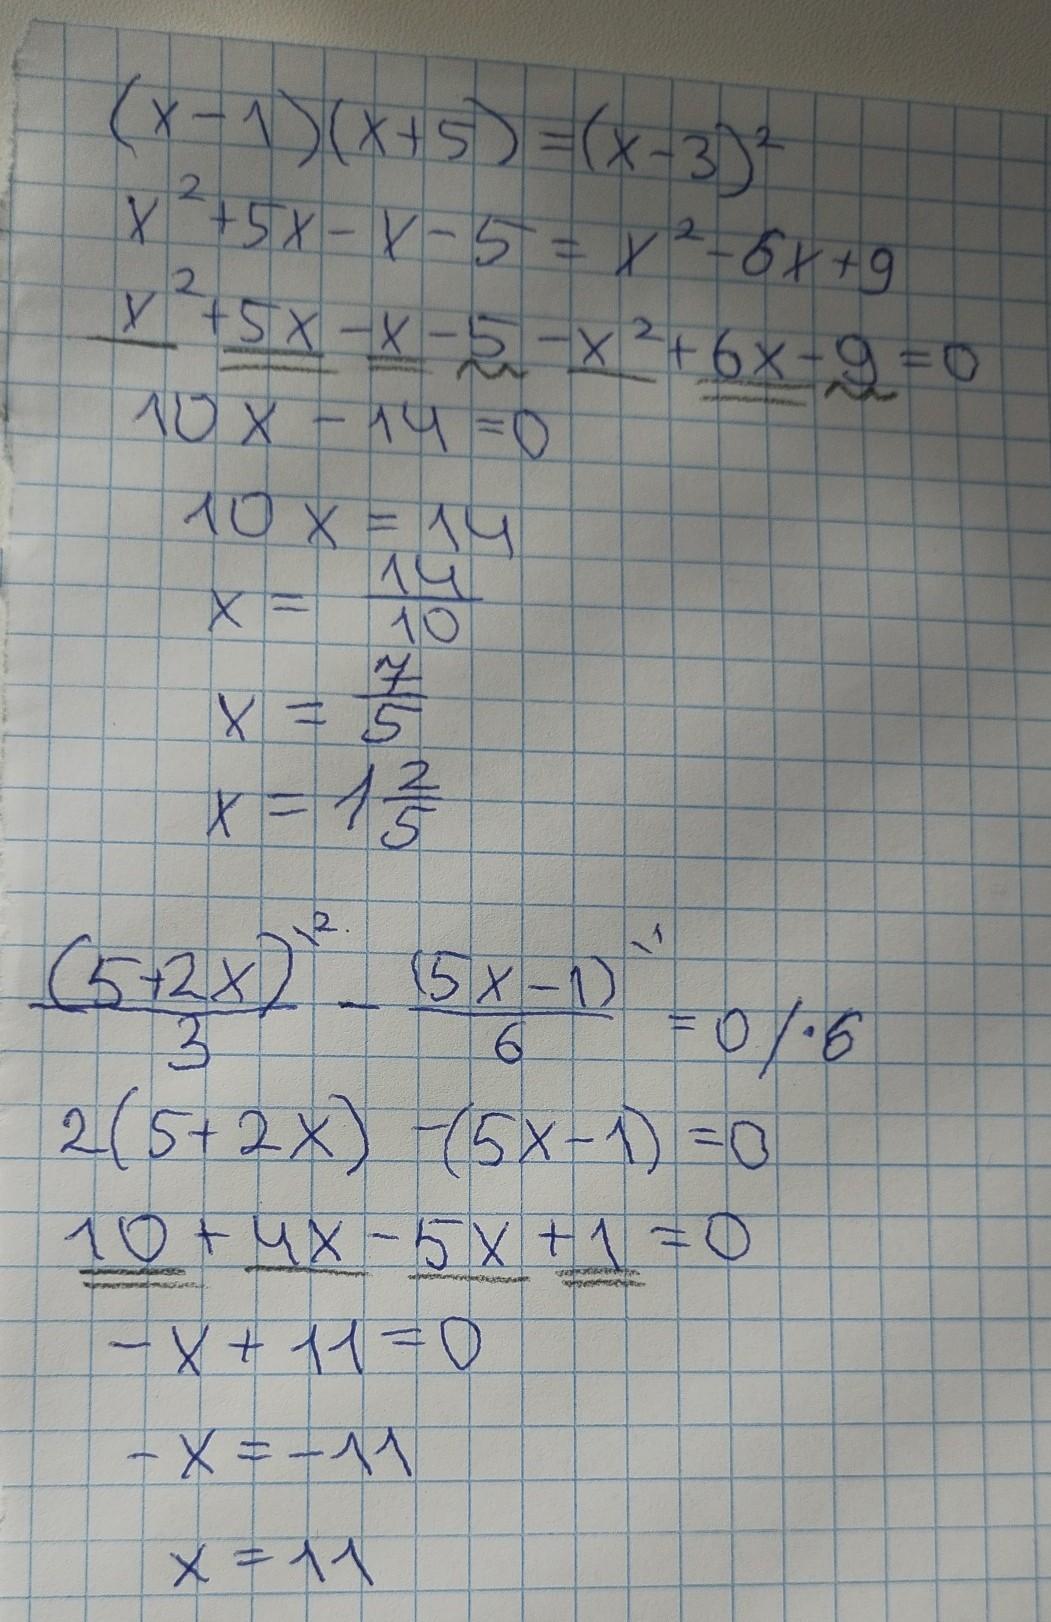 (x-1)(x+5)=(x-3)²
x²+5x-x-5=x²-6x+9
x²+5x-x-5-x²+6x-9=0
10x-14=0
10x=14
x=14/10
x=7/5
x=1 2/5
(5+2x)\²/3 - (5x-1)\¹/6 =0/·6
2(5+2x)-(5x-1)=0
10+4x-5x+1=0
-x+11=0
-x=-11
x=11